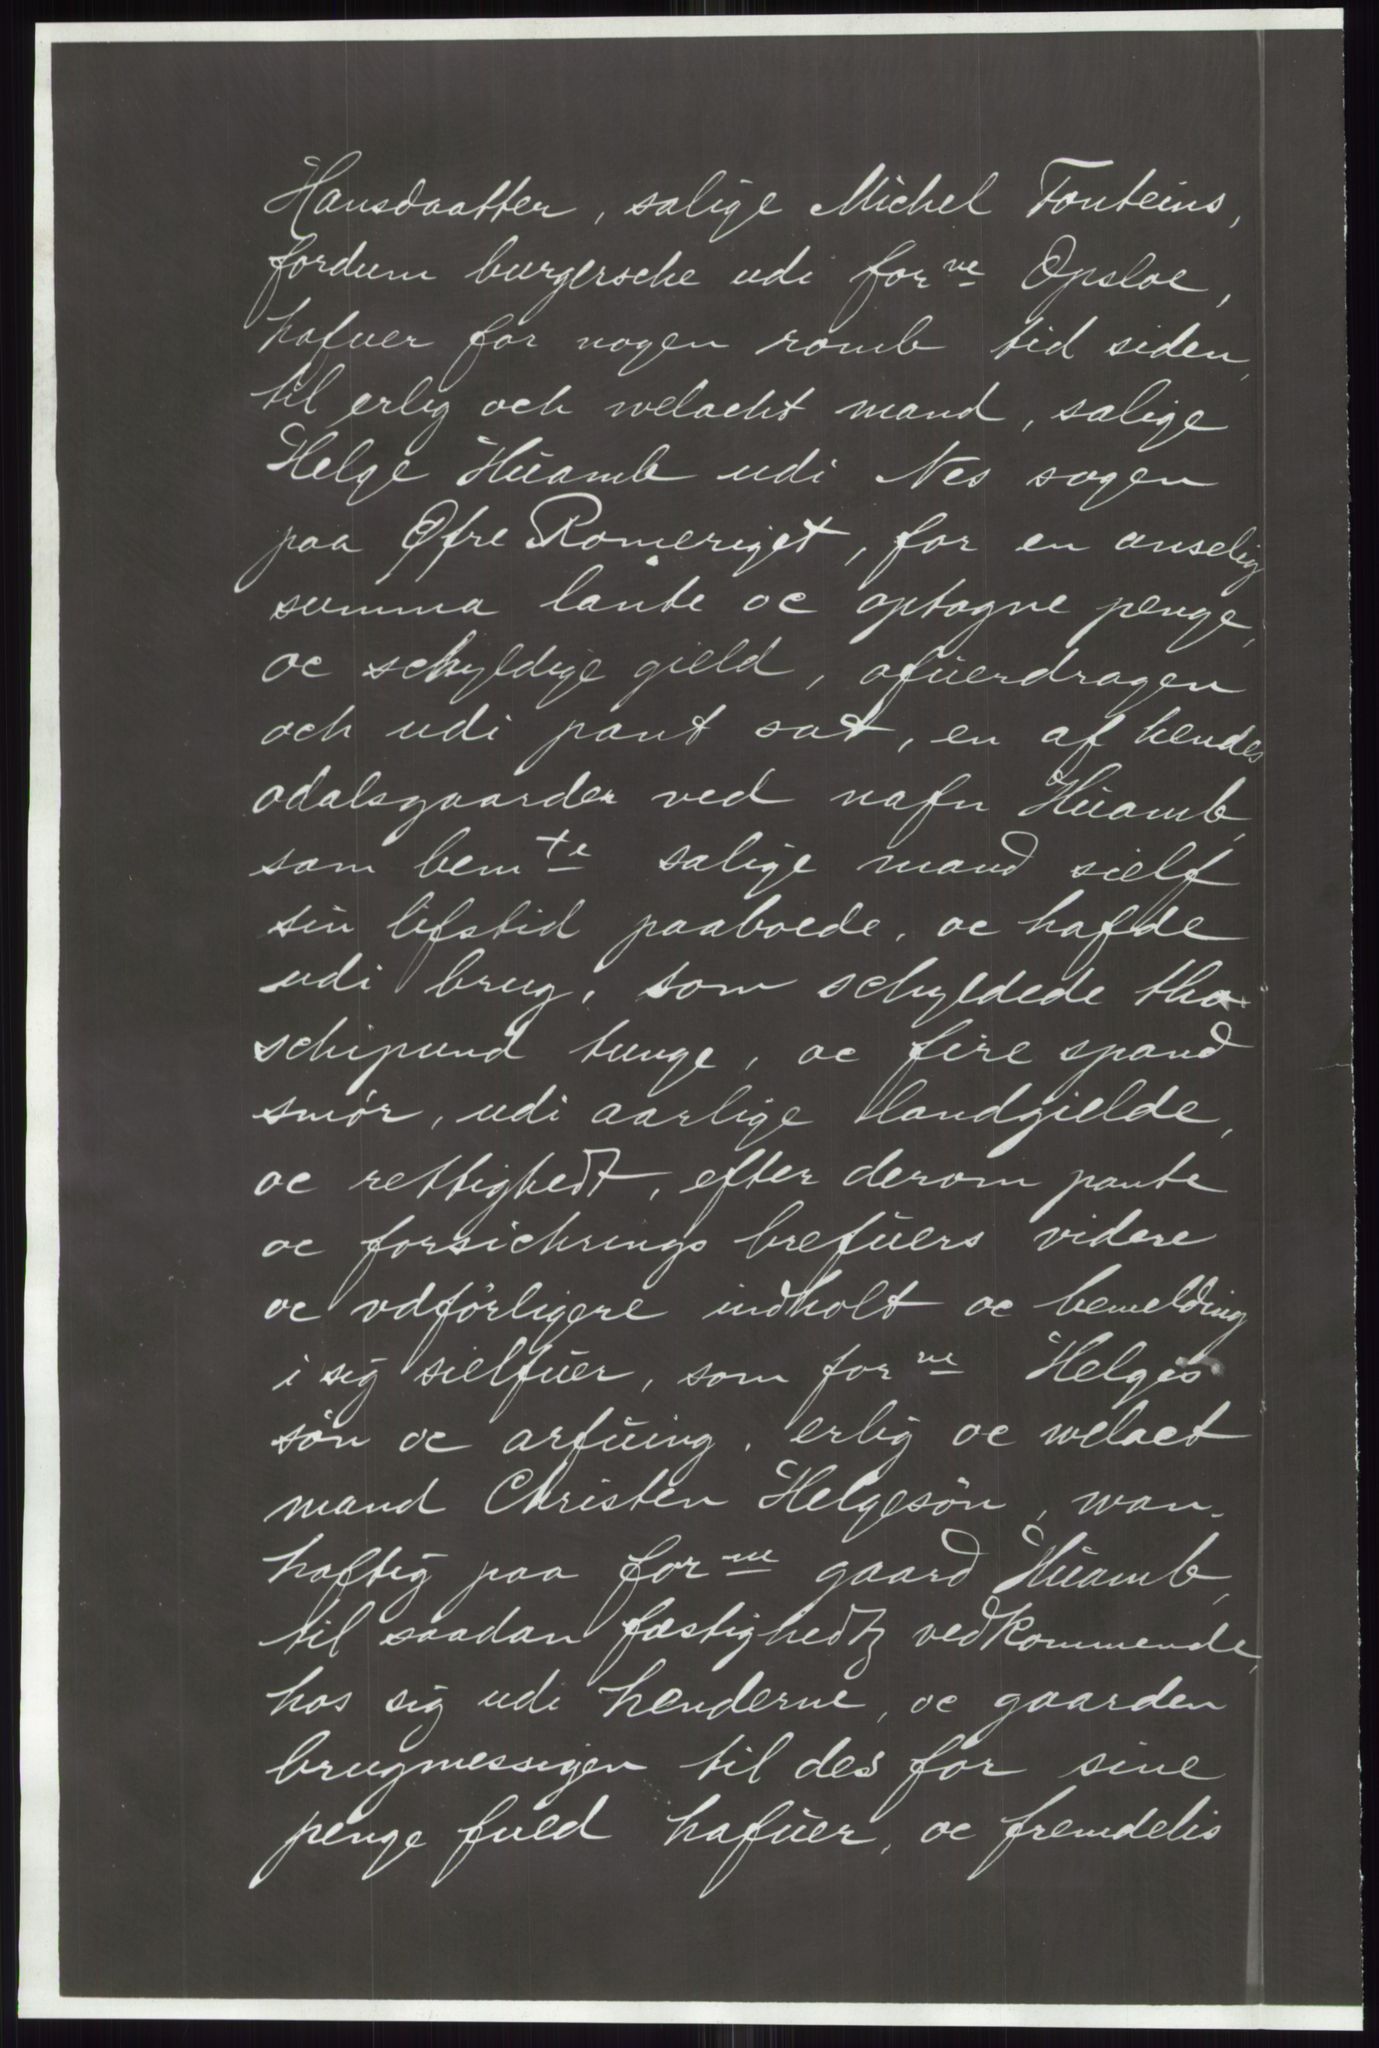 Hansdaatter, salige Michel Fonteins,
fordum burgersche udi for<sup>ne</sup> Opsloe,
hafuer for nogen romb tid siden,
til erlig och welacht mand, salige
Helge Hŭamb udi Nes sogen
paa Øfre Romeriget, for en anselig
summa lante oc optagne penge,
oc schyldige gield, ofŭerdragen
och udi pant sat, en af hendes
odalsgaarder ved nafn Hŭamb,
som bem<sup>te</sup> salige mand sielf
sin lifstid paaboede, oc hafde
udi brug, som schyldede tho
schipund tunge, oc fire spand
smør, udi aarlige landgielde,
oc rettighedt, efter derom pante
oc forsichrings brefŭers videre
oc vdførligere indholt oc bemelding
i sig sielfŭer, som for<sup>ne</sup> Helges
søn oc arfŭing, erlig oc welact
mand Christen Helgesøn, won-
haftig paa for<sup>ne</sup> gaard Hŭamb,
til saadan fæstighedtz vedkommende,
hos sig udi henderne, oc gaarden
brugmessigen til des for sine
penge fuld hafŭer, oc fremdelis